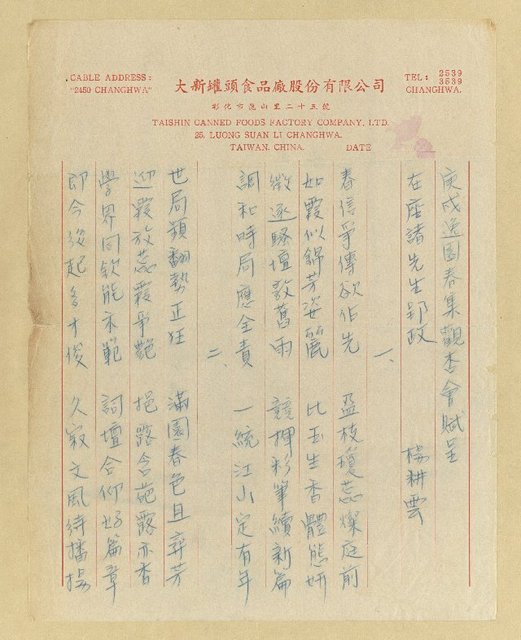 CABLE ADDRESS:
"2450 CHANGHWA"
大新罐頭食品廠股份有限公司
彰化市龍山里二十五號
TEL: 2539
3639
CHANGHWA.
TAISHIN CANNED FOODS FACTORY COMPANY, LTD.
25, LUONG SUAN LI CHANGHWA.
TAIWAN. CHINA. DATE
庚戌逸園春集觀杏會賦呈
在座諸先生郢政 楊耕雲
一、
春信爭傳欲佔先 盈枝瓊蕊燦庭前
如霞似錦芳姿麗 比玉生香體態妍
徵逐騷壇敦舊雨 競揮彩筆續新篇
調和時局應全責 一統江山定有年
二、
世局頻翻勢正狂 滿園春色且弄芳
迎霞放蕊霞爭艷 挹露含葩露亦香
學界同欽能示範 詞壇合仰好篇章
即今後起多才俊 久寂文風待播揚